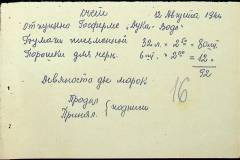 Счет 12 Августа 1944
отпущено Госферме "Лука-Водэ"
Бумаги писменной 32 л. × 2 50 = 80 ml
Порошки для черн. 6 ml. × 2 00 = 12 "
92
Девяносто две марок
Продал
Принял. подписи
16